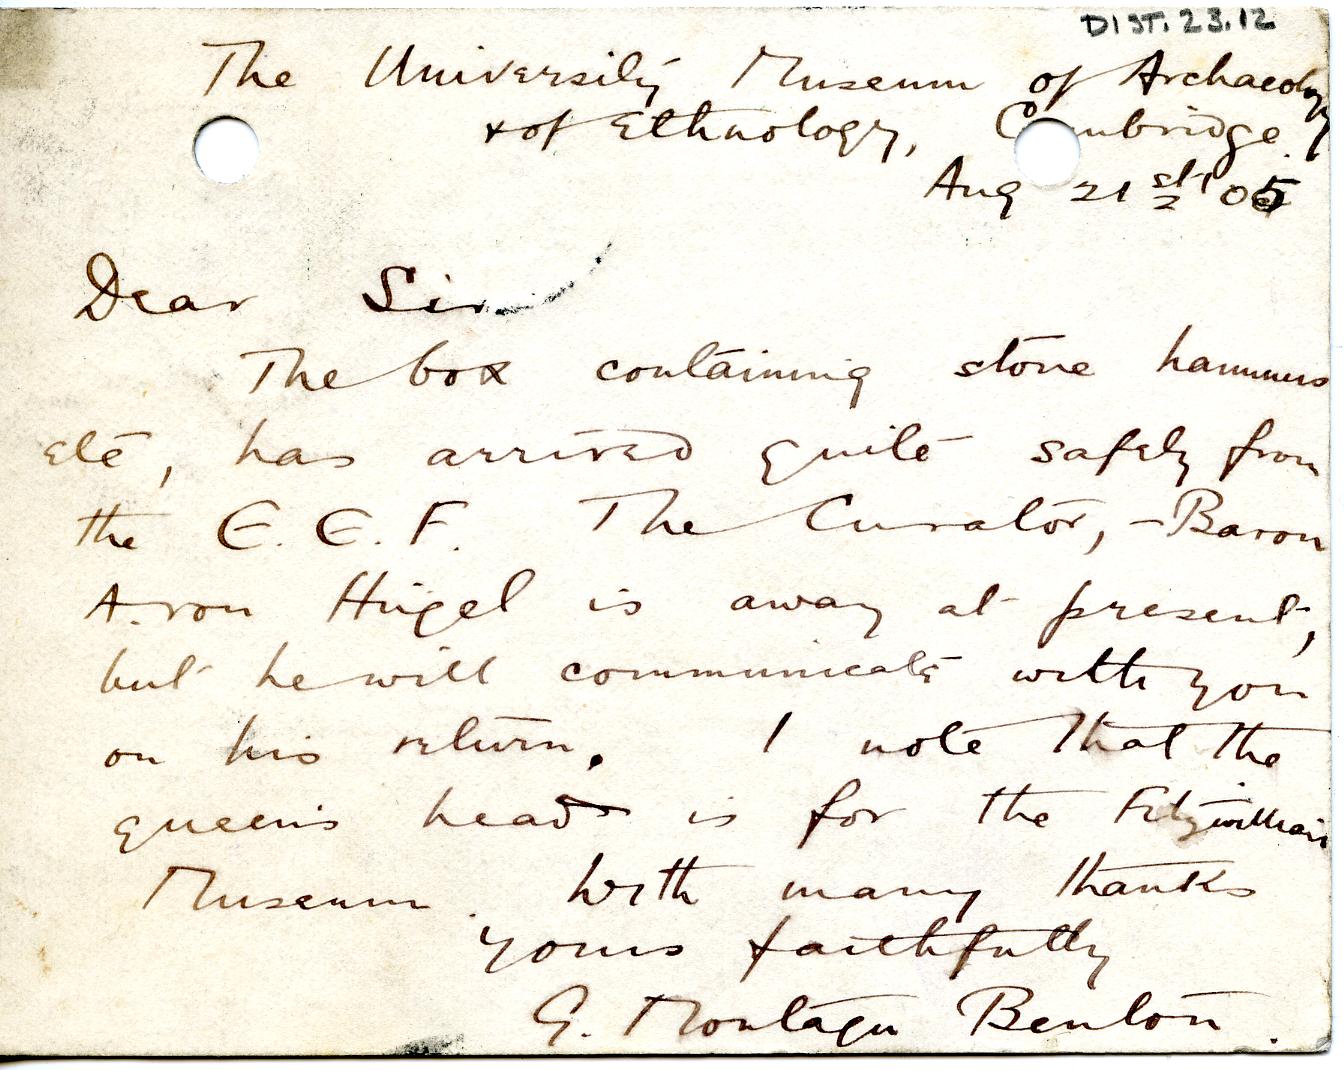 DIST. 23.12
The University Museum of Archaeology
& of Ethnology, Cambridge.
Aug 21st '05
Dear Sir
The box containing stone hammers
etc, has arrived quite safely from
the E. E. F. The Curator, - Baron
A. von Hügel is away at present,
but he will communicate with you
on his return. I note that the
queen's head is for the Fitzwilliam
Museum. With many thanks
yours faithfully
G. Montagu Benton.